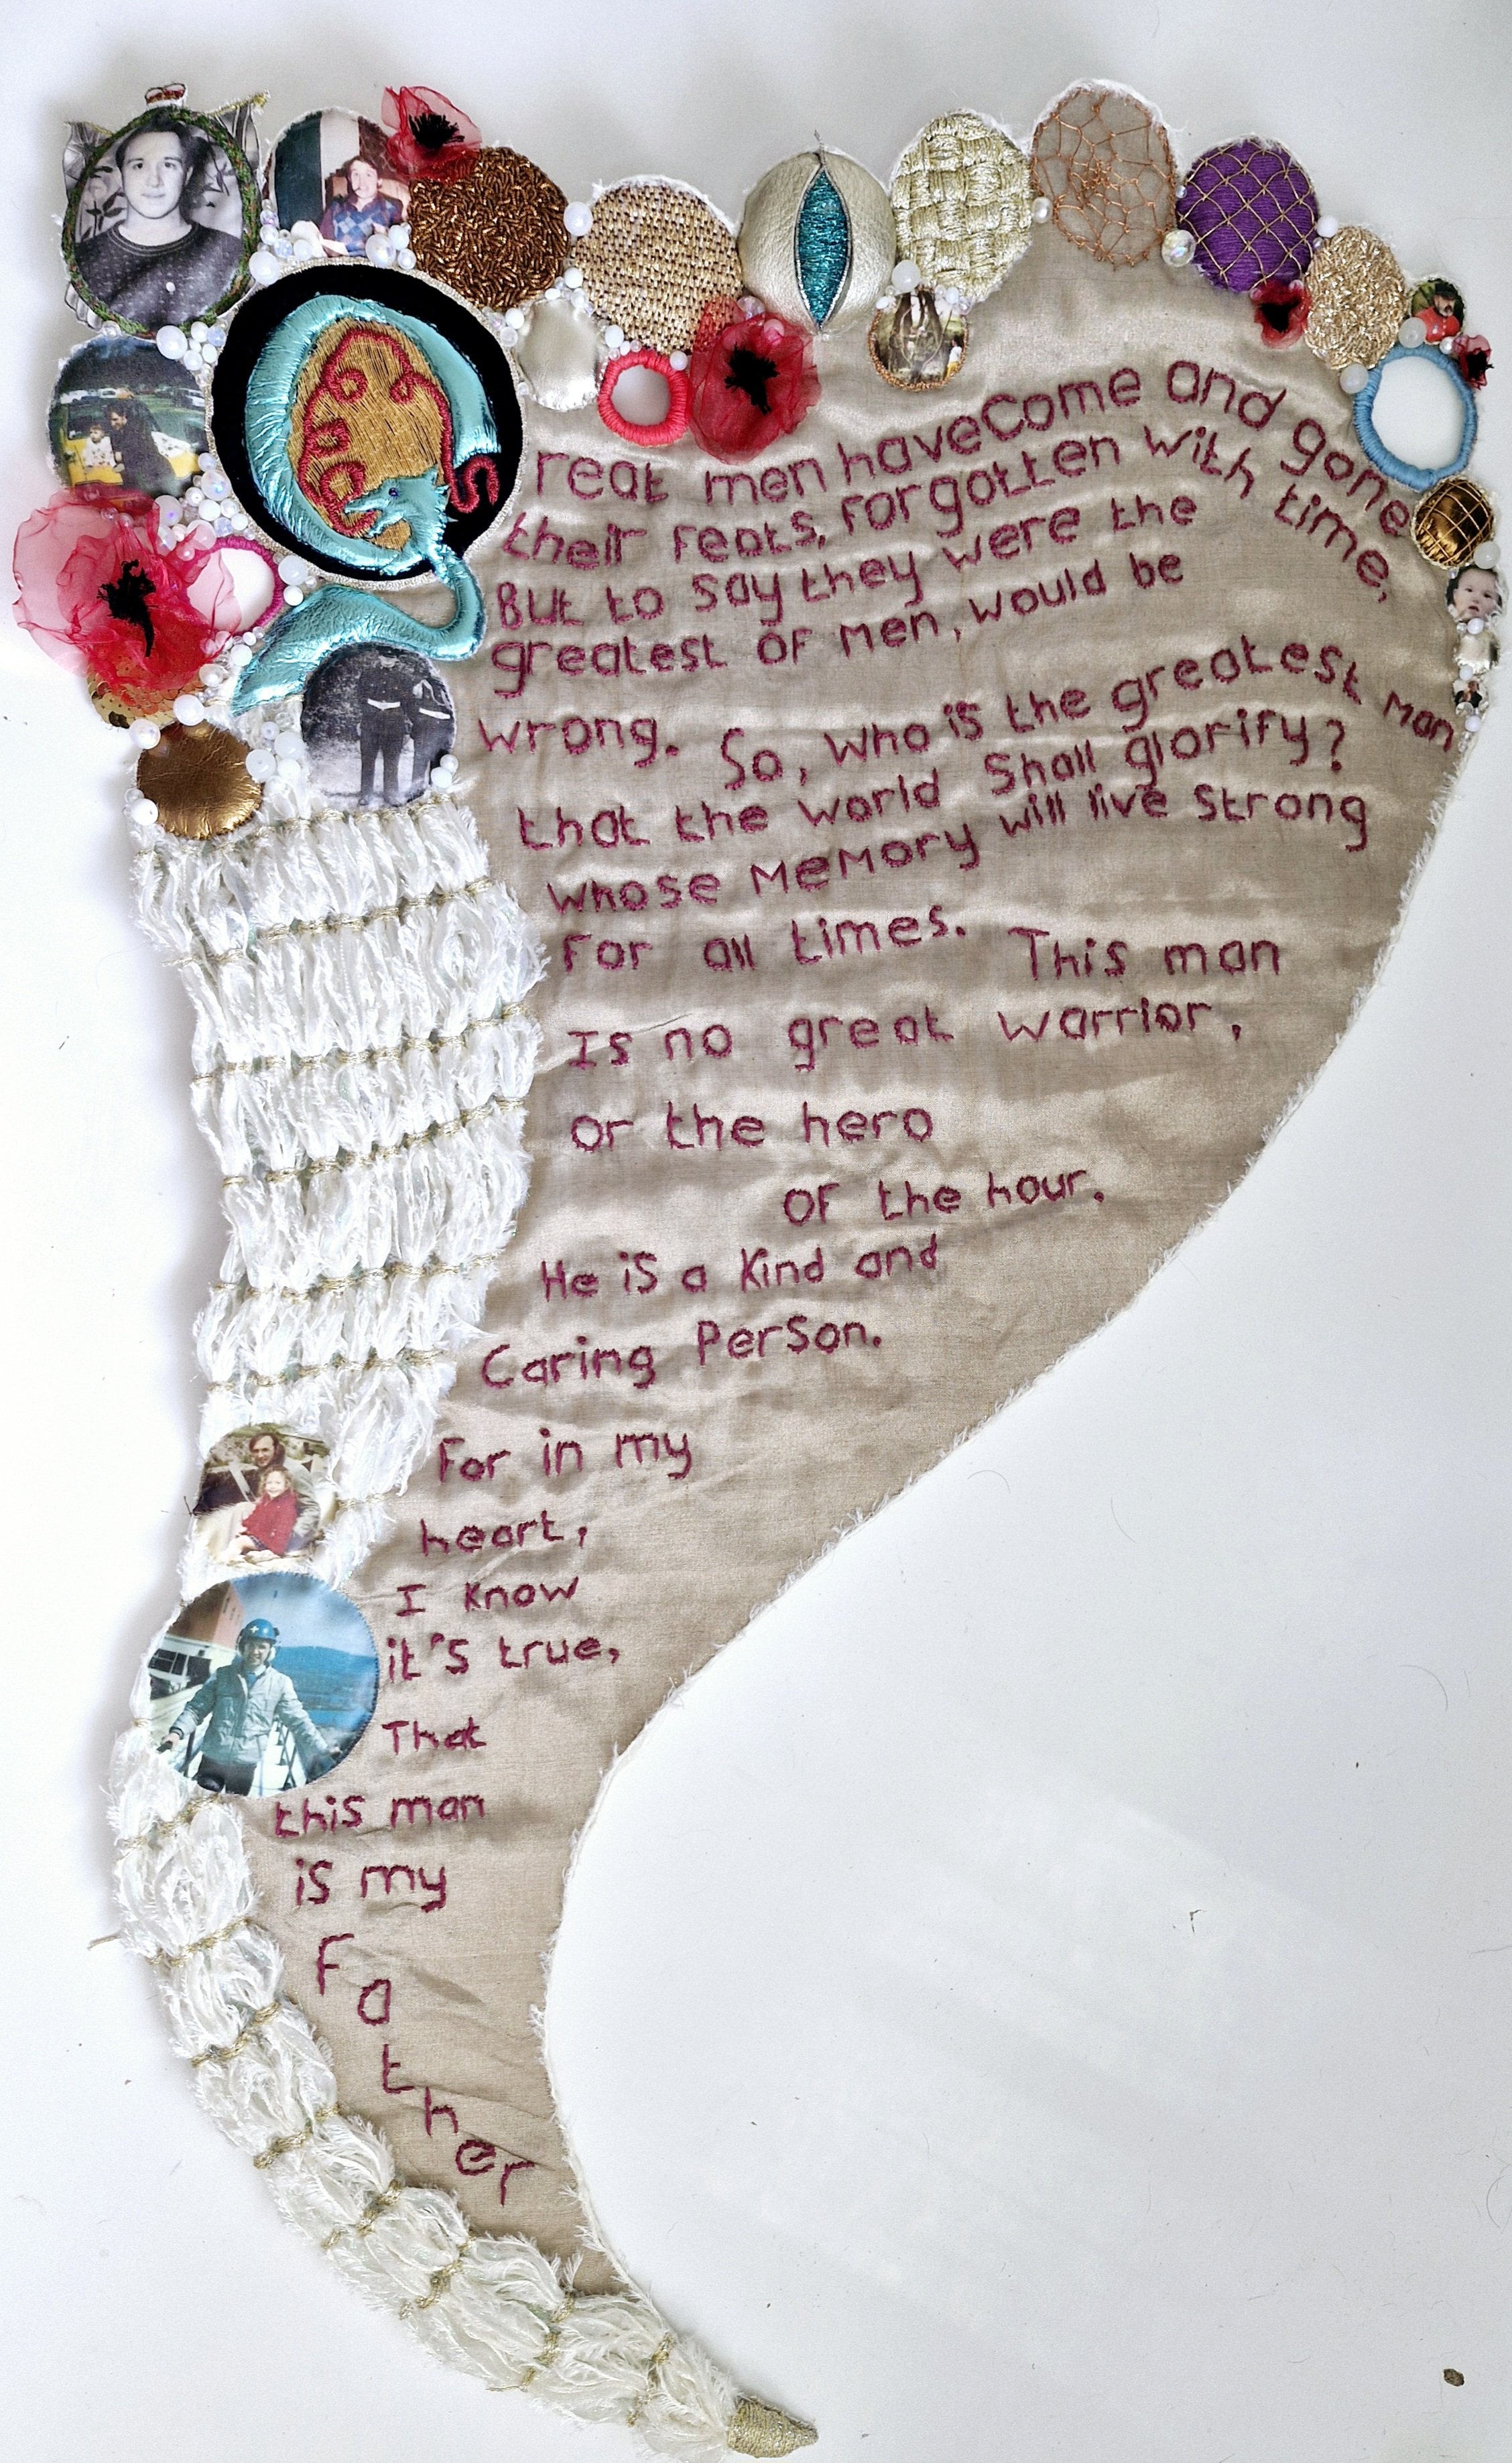 Great men have Come and gone
their feats, forgotten with time,
But to say they were the
greatest of men, would be
wrong. So, who is the greatest man
that the world Shall glorify?
whose Memory will live Strong
For all times. This man
Is no great warrior,
or the hero
of the hour.
He is a Kind and
Caring Person.
For in my
heart,
I know
it's true,
That
this man
is my
Father